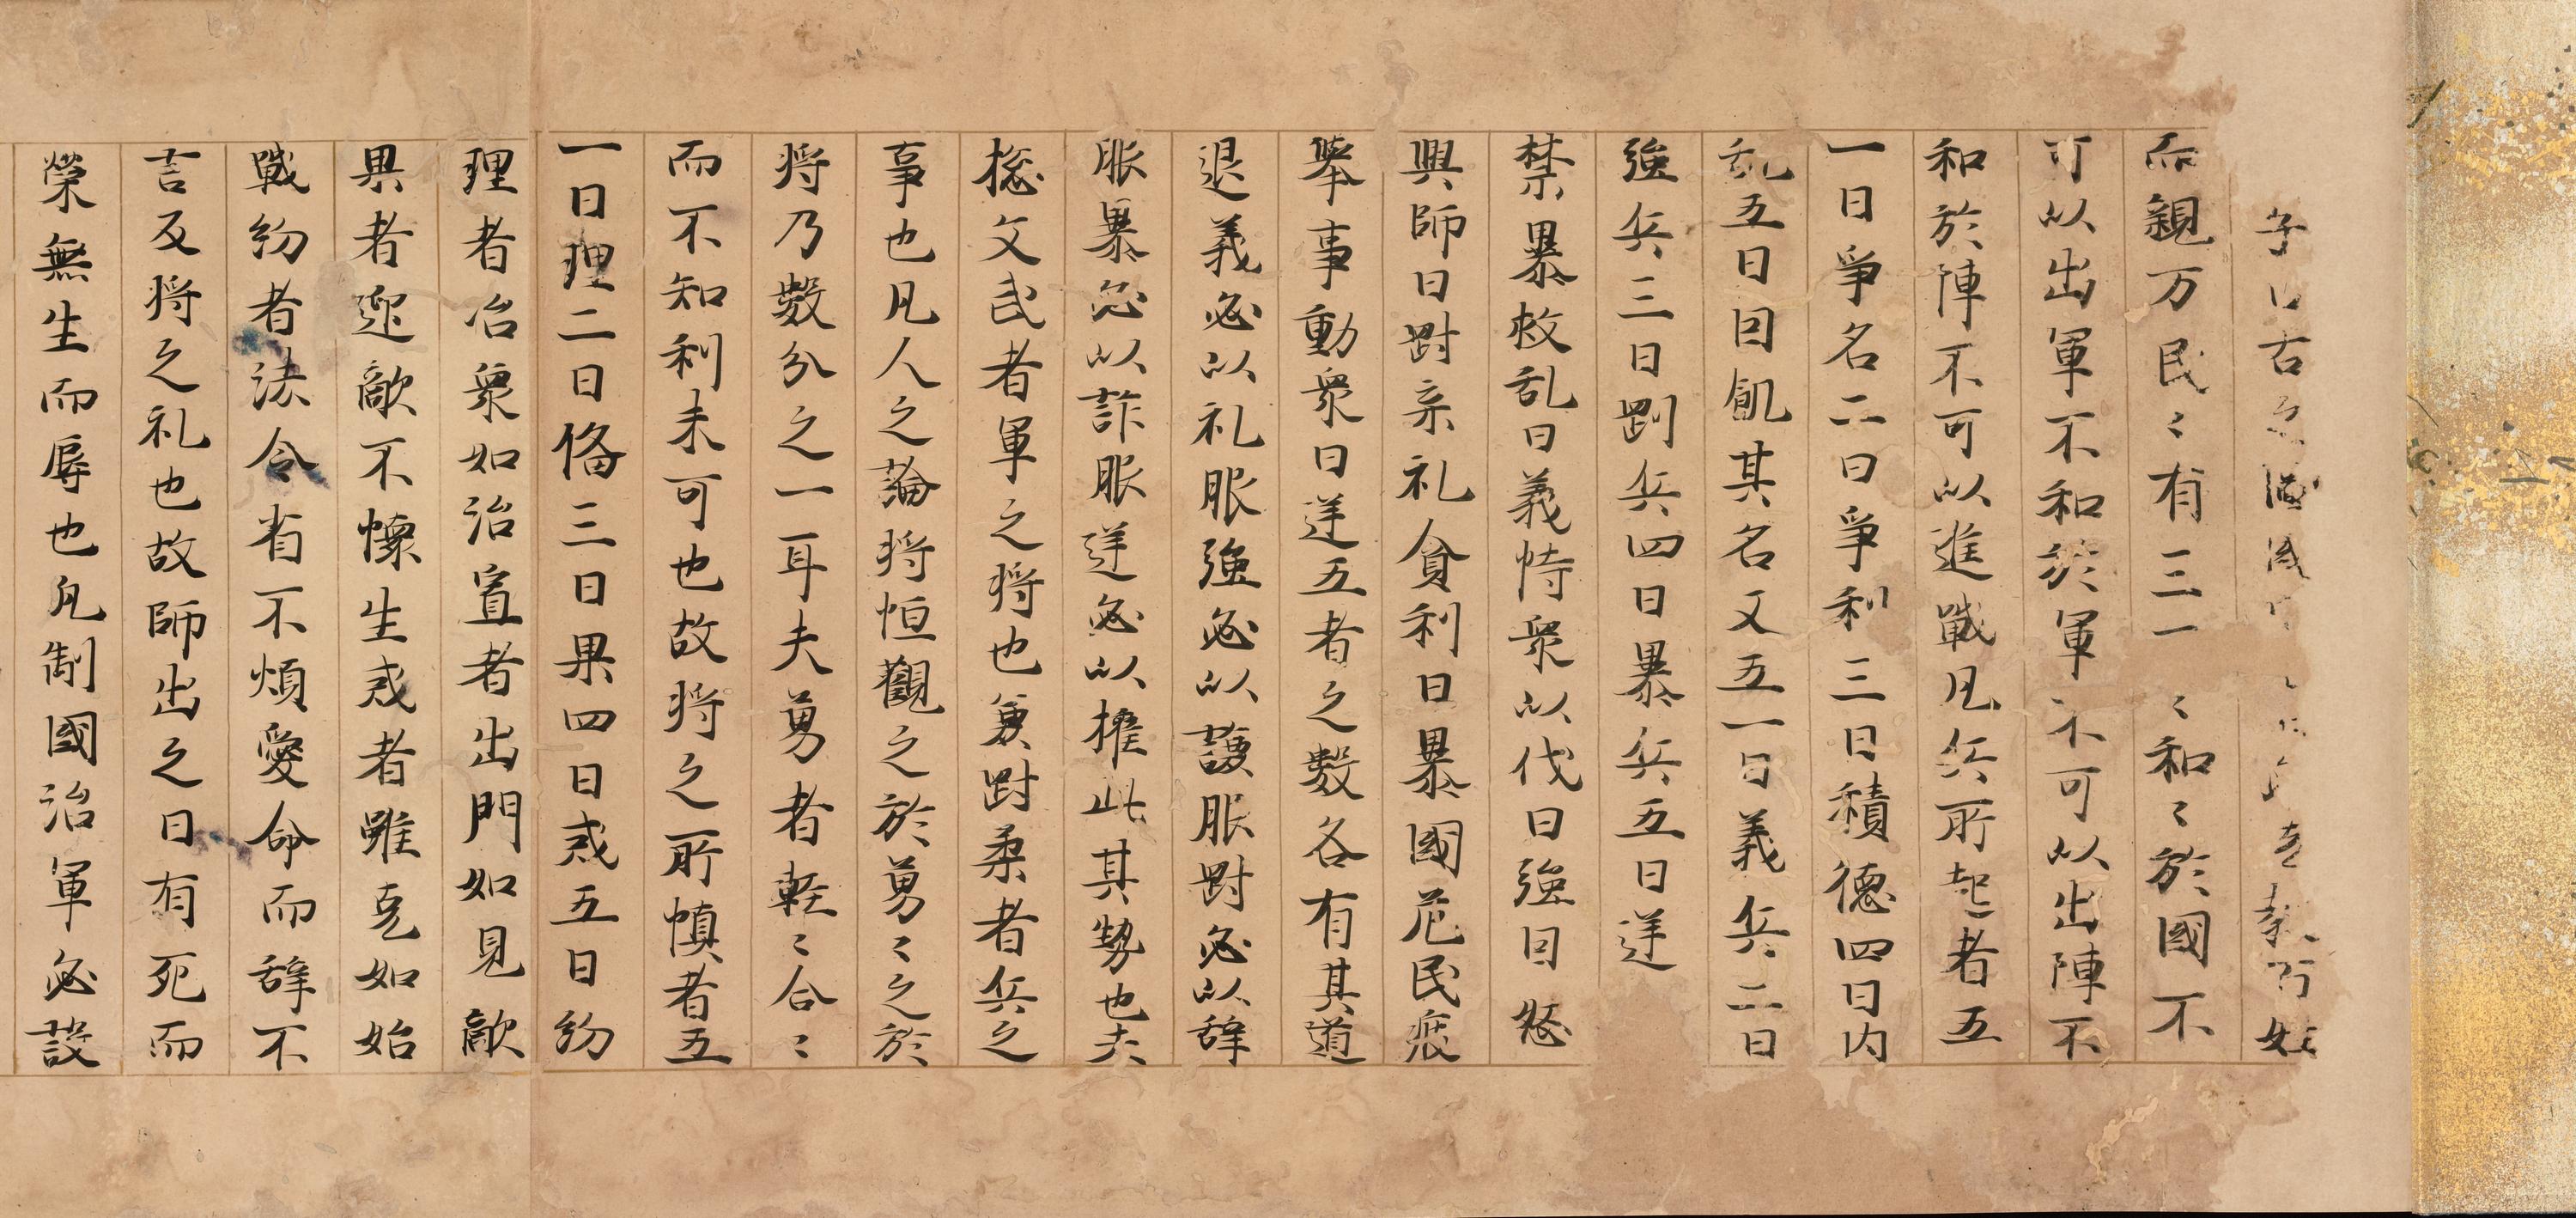 子曰古之國國必教百姓
而親万民〻有三一〻和〻於國不
可以出軍不和於軍不可以出陣不
和於陣不可以進戰凡兵所起者五
一曰爭名二曰爭利三曰積德四曰内
乱五曰因飢其名又五一曰義兵二曰
強兵三曰剛兵四曰暴兵五曰逆
禁暴救乱曰義恃衆以伐曰強因怒
興師曰剛棄礼貪利曰暴國危民疲
擧事動衆曰逆五者之數各有其道
退義必以礼服強必以謙服剛必以辞
服暴必以詐服逆必以權此其勢也夫
揔文武者軍之將也兼剛柔者兵之
事也凡人之論將恒觀之於勇〻之於
將乃數分之一耳夫勇者輕〻合〻
而不知利未可也故將之所慎者五
一曰理二曰俻三曰果四曰惑五曰約
理者治衆如治寡者出門如見敵
果者迎敵不懷生惑者雖克如始
戰約者法令省不煩愛命而辞不
言反將之礼也故師出之曰有死而
榮無生而辱也凡制國治軍必設